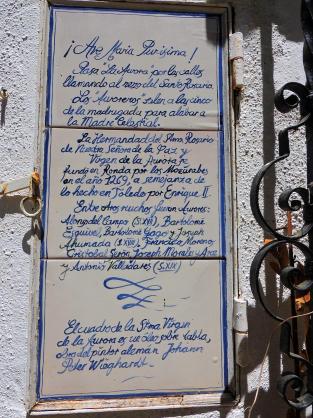 ¡Ave Maria Purisima!
Pasa "La Aurora" por las calles
llamando al rezo del Santo Rosario.
Los "Auroreros" salen a las cinco
de la madrugada para alabar a
la Madre Celestial.
La Hermandad del Stmo. Rosario
de Nuestra Señora de la Paz y
Virgen de la Aurora, se
fundó en Ronda por los Mozárabes
en el año 1269, a semejanza de
lo hecho en Toledo por Enrique II.
Entre otros muchos fueron Aurores:
Alonso del Campo (S.XVI), Bartolomé
Esquivel, Bartolomé Gago y Joseph
Ahumada (S.XVII), Francisco Moreno,
Cristobal Serón, Joseph Morales y Arce
y Antonio Valladares (S.XIX)
El cuadro de la Stma Virgen
de la Aurora es un óleo sobre tabla,
obra del pintor alemán Johann
Peter